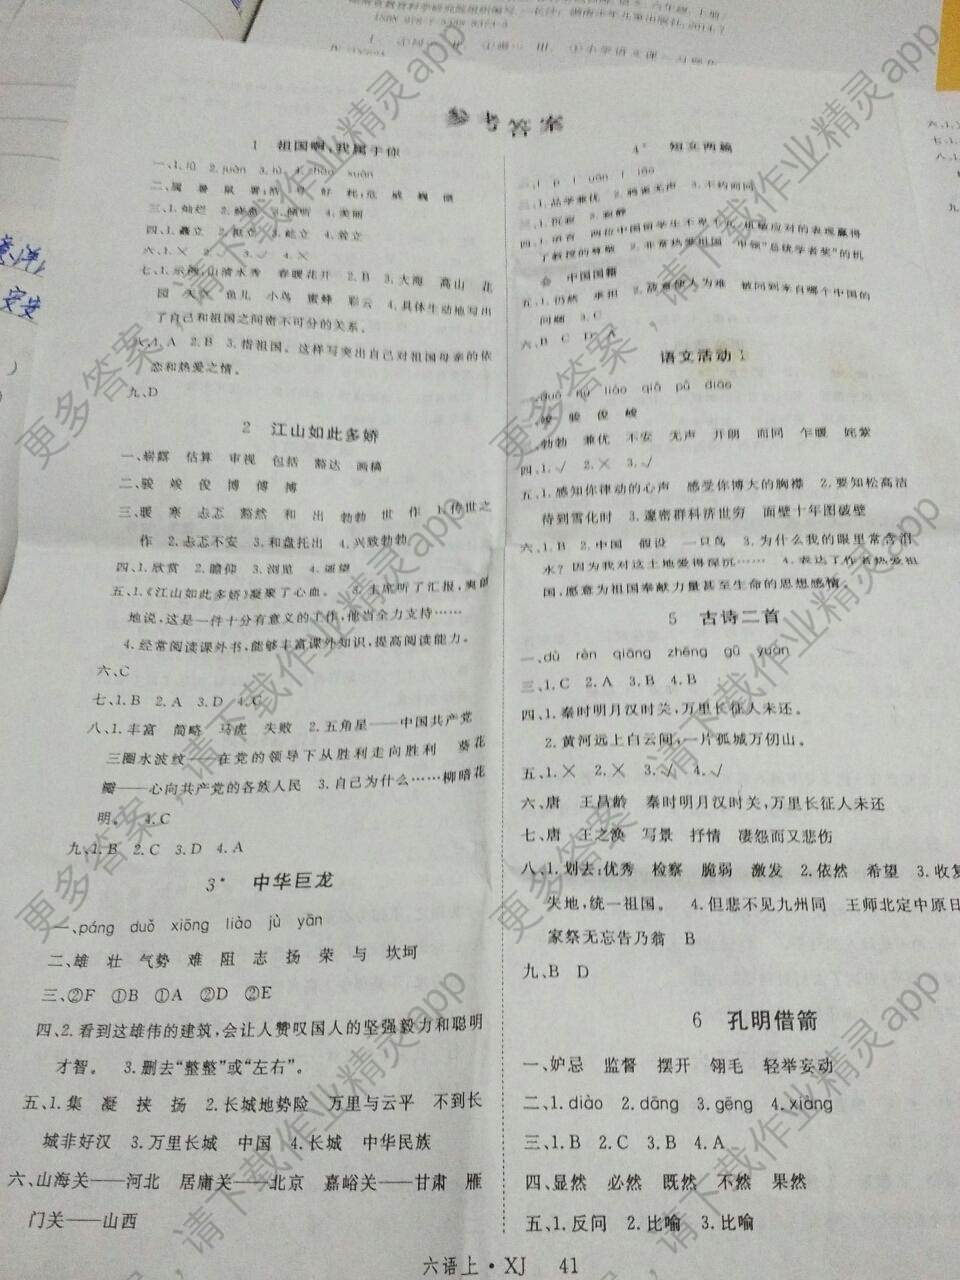 参考答案
1 祖国啊,我属于你
三、1.灿烂 2. 3.倾听 4.美丽
四、1.矗立 2. 3.屹立 4.耸立
六、1.× 2.×
七、1.示例:山清水秀 春暖花开 2.B 3.大海 高山 花
园 天空 鱼儿 小鸟 蜜蜂 彩云 4.具体生动地写出
了自己和祖国之间密不可分的关系。
八、1.A 2.B 3.指祖国。这样写突出自己对祖国母亲的依
恋和热爱之情。
九、D
2 江山如此多娇
一、崭露 估算 审视 包括 豁达 画稿
二、骏 竣 俊 博 傅 搏
三、暖 寒 忐忑 豁然 和 出 勃勃 世 作 1.传世之
作 2.忐忑不安 3.和盘托出 4.兴致勃勃
四、1.欣赏 2.瞻仰 3.浏览 4.遥望
五、1.《江山如此多娇》凝聚了心血。 3.主席听了汇报,爽朗
地说,这是一件十分有意义的工作,他当全力支持……
4.经常阅读课外书,能够丰富课外知识,提高阅读能力。
六、C
七、1.B 2.A 3.D 4.C
八、1.丰富 简略 马虎 失败 2.五角星——中国共产党
三圈水波纹——在党的领导下从胜利走向胜利 葵花
瓣——心向共产党的各族人民 3.自己为什么……柳暗花
明。 4.C
九、1.B 2.C 3.D 4.A
3* 中华巨龙
一、páng duǒ xiōng liào jù yān
二、雄 壮 气势 难 阻 志 扬 荣 与 坎坷
三、②F ①B ①A ②D ②E
四、2.看到这雄伟的建筑,会让人赞叹国人的坚强毅力和聪明
才智。 3.删去“整整”或“左右”。
五、1.集 凝 挟 扬 2.长城地势险 万里与云平 不到长
城非好汉 3.万里长城 中国 4.长城 中华民族
六、山海关——河北 居庸关——北京 嘉峪关——甘肃 雁
门关——山西
4* 短文两篇
二、1.品学兼优 2.鸦雀无声 3.不约而同
三、1.沉寂 2.寂静
四、1.语言 两位中国留学生不卑不亢、机敏应对的表现赢得
了教授的尊敬 2.非常热爱祖国 申领“总统学者奖”的机
会 中国国籍
五、1.仍然 承担 2.故意使人为难 被问到来自哪个中国的
问题 3.C
六、B C D A
语文活动1
骏 俊 峻
勃勃 兼优 不安 无声 开朗 而同 乍暖 姹紫
四、1.√ 2.× 3.√
五、1.感知你律动的心声 感受你博大的胸襟 2.要知松高洁
待到雪化时 3.邃密群科济世穷 面壁十年图破壁
六、1.B 2.中国 假设 一只鸟 3.为什么我的眼里常含泪
水?因为我对这土地爱得深沉…… 4.表达了作者热爱祖
国,愿意为祖国奉献力量甚至生命的思想感情。
5 古诗二首
一、dù rén qiāng zhēng gū yuàn
三、1.C 2.A 3.B 4.B
四、1.秦时明月汉时关,万里长征人未还。
2.黄河远上白云间,一片孤城万仞山。
五、1.× 2.× 3.√ 4.√
六、唐 王昌龄 秦时明月汉时关,万里长征人未还
七、唐 王之涣 写景 抒情 凄怨而又悲伤
八、1.划去:优秀 检察 脆弱 激发 2.依然 希望 3.收复
失地,统一祖国。 4.但悲不见九州同 王师北定中原日
家祭无忘告乃翁 B
九、B D
6 孔明借箭
一、妒忌 监督 摆开 翎毛 轻举妄动
二、1.diào 2.dāng 3.gēng 4.xiàng
三、1.B 2.C 3.B 4.A
四、显然 必然 既然 不然 果然
五、1.反问 2.比喻 3.比喻
六语上·XJ 41
更多答案,请下载作业精灵app